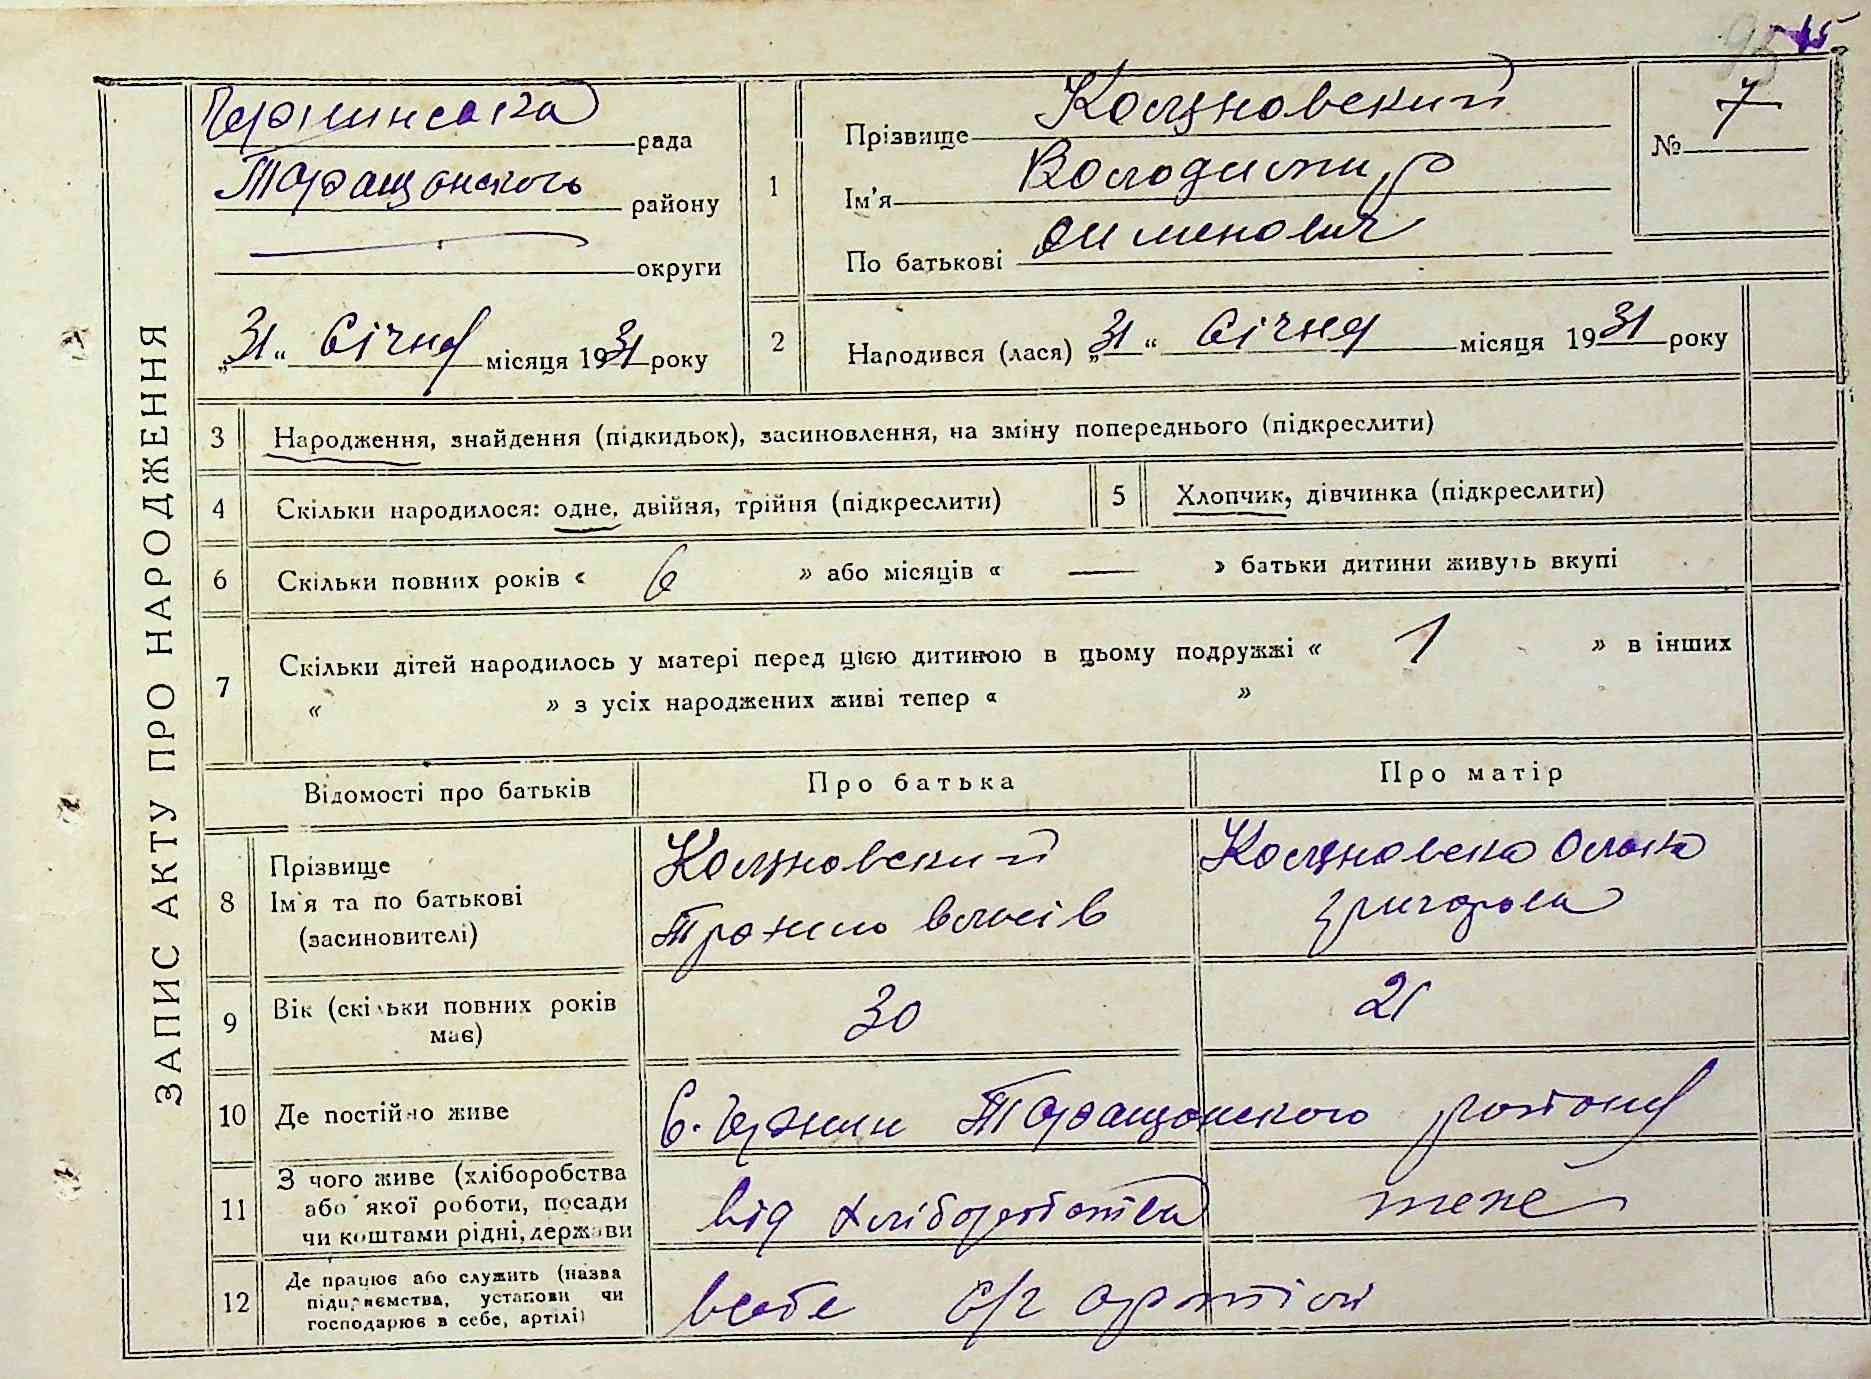 95 15
ЗАПИС АКТУ ПРО НАРОДЖЕННЯ
рада
Таращанского району
округи
„31“ Січня місяця 1931 року
1
Прізвище
Ім'я Володимир
По батькові
№ 7
2
Народився (лася) „31“ Січня місяця 1931 року
3 Народження, знайдення (підкидьок), засиновлення, на зміну попереднього (підкреслити)
4 Скільки народилося: одне, двійня, трійня (підкреслити)
5 Хлопчик, дівчинка (підкреслити)
6 Скільки повних років « 6 » або місяців « — » батьки дитини живуть вкупі
7 Скільки дітей народилось у матері перед цією дитиною в цьому подружжі « 1 » в інших
« » з усіх народжених живі тепер « »
Відомості про батьків
Про батька
Про матір
8 Прізвище
Ім'я та по батькові
(засиновителі)
9 Вік (скільки повних років
має)
30
21
10 Де постійно живе
С. Таращанского району
11 З чого живе (хліборобства
або якої роботи, посади
чи коштами рідні, держави
від хліборобства
теж
12 Де працює або служить (назва
підприємства, установи чи
господарює в себе, артілі)
с/г артілі